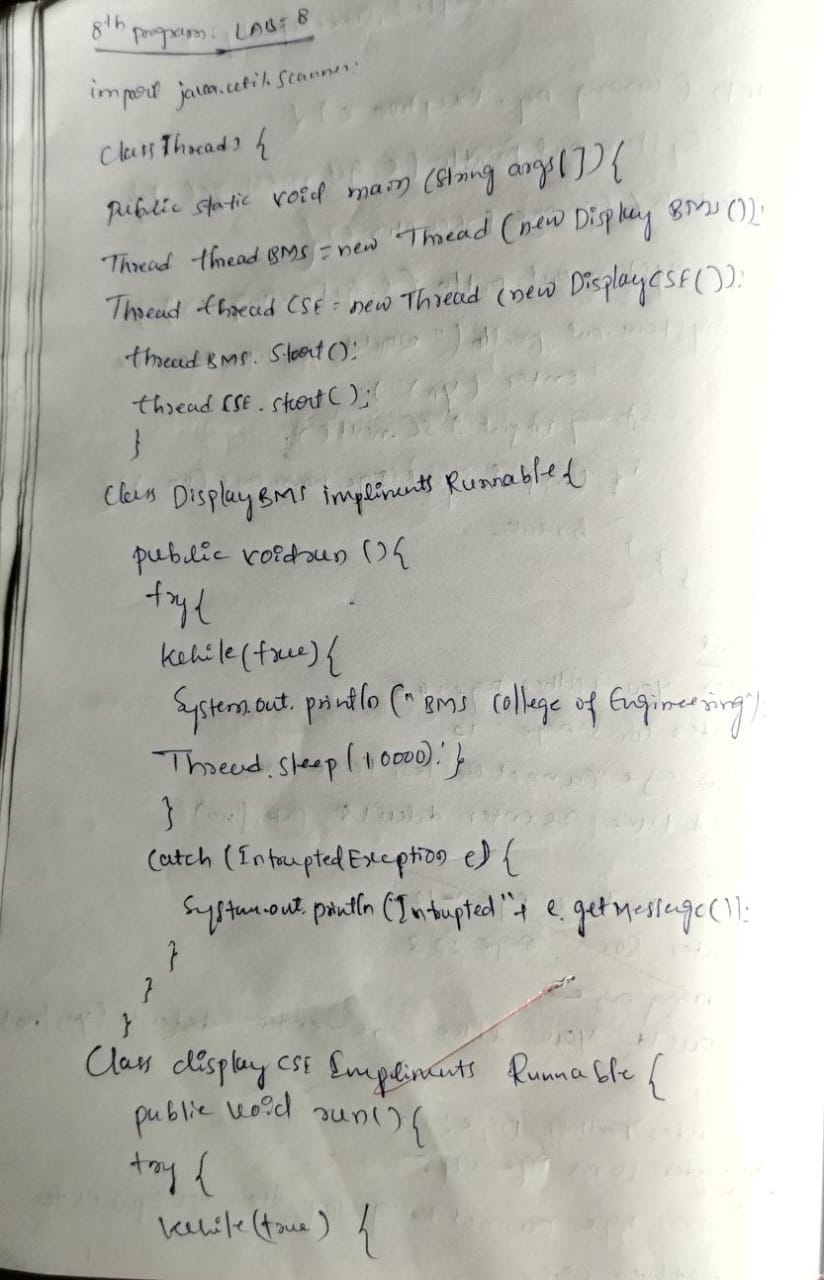 8th program: LAB: 8
import java.util.Scanner;
Class Threads {
public static void main (String args[]){
Thread threadBMS = new Thread (new Display BMS ());
Thread thread CSE = new Thread (new DisplayCSE());
thread BMS. Start();
thread CSE. start();
}
Class DisplayBMS impliments Runnable{
public void run (){
try{
while(true){
System.out. println (" BMS College of Engineering");
Thread. sleep (10000); }
}
Catch (IntruptedException e) {
System.out. println ("Intrupted"+ e. getMessage());
}
}
}
Class display CSE Impliments Runnable {
public void run(){
try {
while(true) {